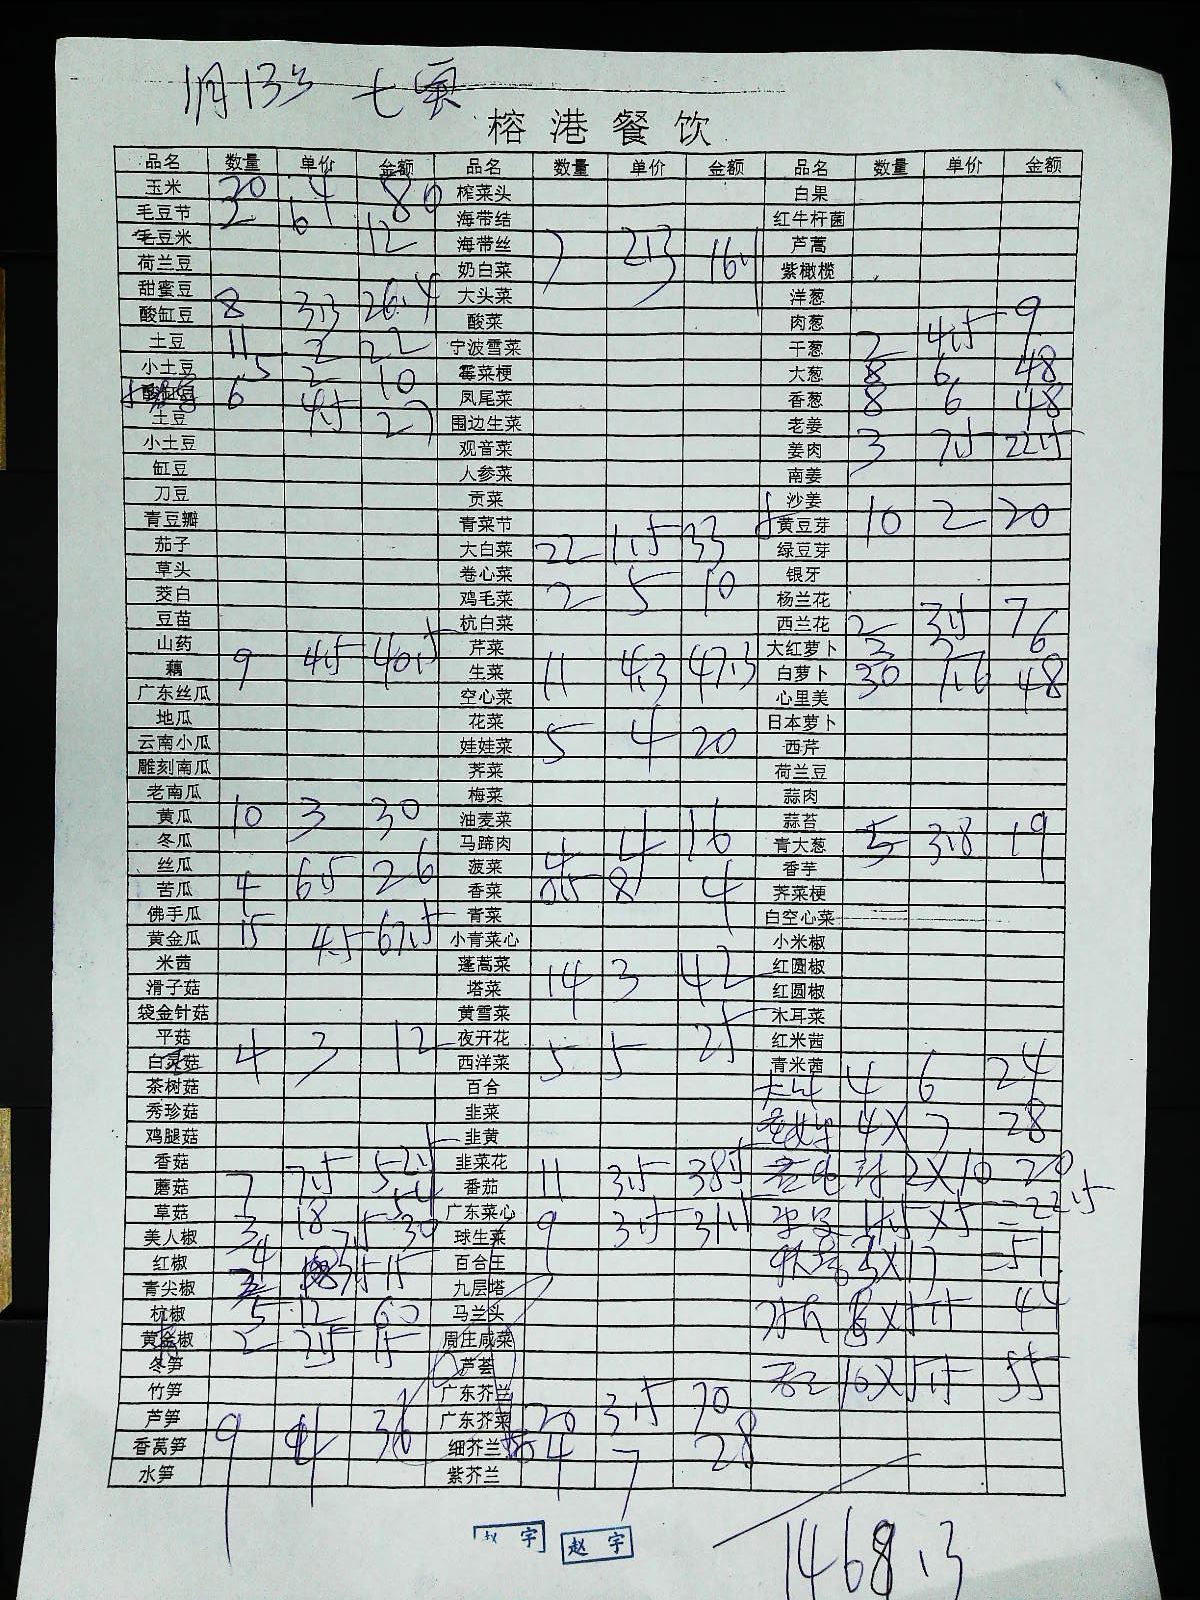 1月13号
榕港餐饮
品名 数量 单价 金额 品名 数量 单价 金额 品名 数量 单价 金额
玉米 20 4 80 榨菜头 白果
毛豆节 2 6 12 海带结 红牛杆菌
毛豆米 海带丝 7 2.3 16.1 芦蒿
荷兰豆 奶白菜 紫橄榄
甜蜜豆 大头菜 洋葱
酸缸豆 8 3.3 26.4 酸菜 肉葱
土豆 11 2 22 宁波雪菜 干葱 2 4.5 9
小土豆 5 2 10 霉菜梗 大葱 8 6 48
6 4.5 27 凤尾菜 香葱 8 6 48
土豆 围边生菜 老姜
小土豆 观音菜 姜肉 3 7.5 22.5
缸豆 人参菜 南姜
刀豆 贡菜 沙姜
青豆瓣 青菜节 黄豆芽 10 2 20
茄子 大白菜 22 1.5 33 绿豆芽
草头 卷心菜 银牙
茭白 鸡毛菜 2 5 10 杨兰花
豆苗 杭白菜 西兰花 2 3.5 7
山药 芹菜 大红萝卜 3 2 6
藕 9 4.5 40.5 生菜 11 4.3 47.3 白萝卜 30 1.6 48
广东丝瓜 空心菜 心里美
地瓜 花菜 日本萝卜
云南小瓜 娃娃菜 5 4 20 西芹
雕刻南瓜 荠菜 荷兰豆
老南瓜 梅菜 蒜肉
黄瓜 10 3 30 油麦菜 蒜苔
冬瓜 马蹄肉 青大葱 5 3.8 19
丝瓜 菠菜 4 4 16 香芋
苦瓜 4 6.5 26 香菜 0.5 8 4 荠菜梗
佛手瓜 青菜 白空心菜
黄金瓜 15 4.5 67.5 小青菜心 小米椒
米茜 蓬蒿菜 红圆椒
滑子菇 塔菜 14 3 42 红圆椒
袋金针菇 黄雪菜 木耳菜
平菇 夜开花 红米茜
白灵菇 4 3 12 西洋菜 5 5 25 青米茜
茶树菇 百合 4 6 24
秀珍菇 韭菜 4X7 28
鸡腿菇 韭黄
香菇 7 7.5 52.5 韭菜花 2X10 20
蘑菇 3 18 54 番茄 11 3.5 38.5
草菇 广东菜心 X5 =22.5
美人椒 4 7.5 30 球生菜 9 3.5 31.5
红椒 3.5 15 百合王 3X17 =51
青尖椒 九层塔
杭椒 5 12 60 马兰头 8X5.5 44
黄金椒 2 7.5 15 周庄咸菜
冬笋 芦荟 10X5.5 55
竹笋 广东芥兰
芦笋 广东芥菜 20 3.5 70
香莴笋 9 4 36 细芥兰 4 7 28
水笋 紫芥兰
赵宇 赵宇
1468.3